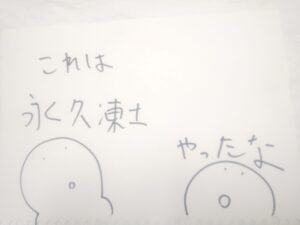 これは
永久凍土
やったな